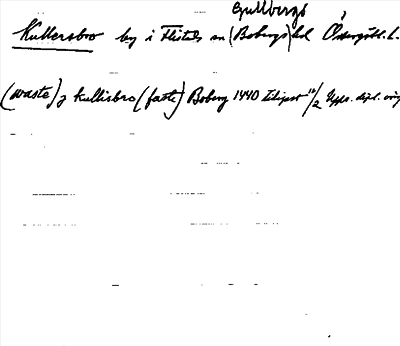 Gullbergs
Kullersbro by i Flistads sn (Bobergs) hd Östergötl. l.
(waste) j kullisbro (faste) Boberg 1440 Linköp 10/2 Upps. dipl. orig